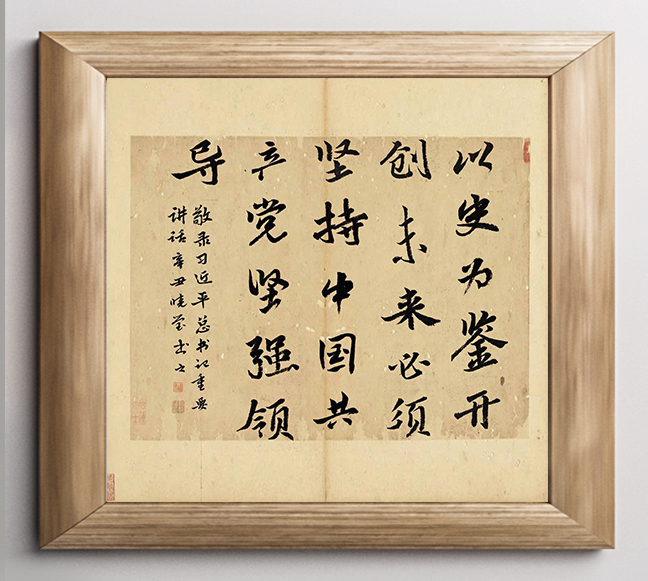 以史为鉴开
创未来必须
坚持中国共
产党坚强领
导
敬录习近平总书记重要
讲话辛丑晓莹书之